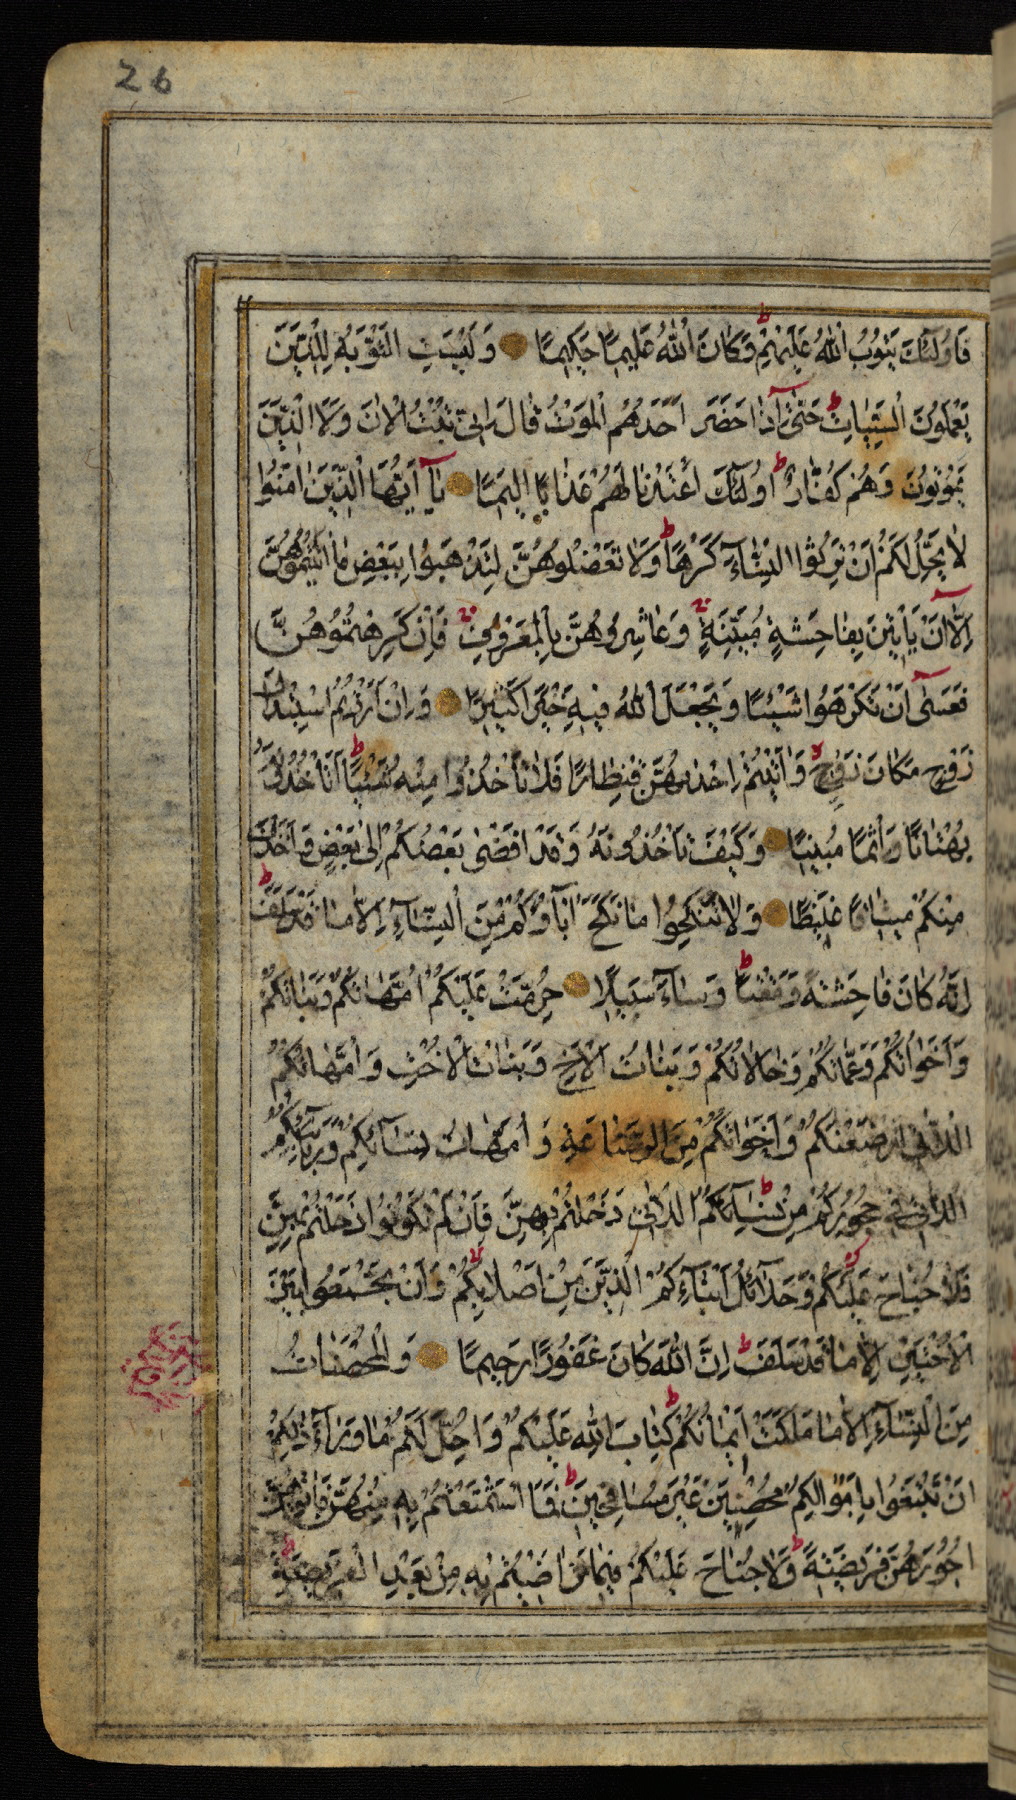 26
فَاُولٰئِكَ يَتُوبُ اللّٰهُ عَلَيْهِمْ ط وَكَانَ اللّٰهُ عَلِيمًا حَكِيمًا وَلَيْسَتِ التَّوْبَةُ لِلَّذِينَ
يَعْمَلُونَ السَّيِّئَاتِ ط حَتّٰى اِذَا حَضَرَ اَحَدَهُمُ الْمَوْتُ قَالَ اِنِّى تُبْتُ الْاٰنَ وَلَا الَّذِينَ
يَمُوتُونَ وَهُمْ كُفَّارٌ ط اُولٰئِكَ اَعْتَدْنَا لَهُمْ عَذَابًا اَلِيمًا يَآ اَيُّهَا الَّذِينَ اٰمَنُوا
لَا يَحِلُّ لَكُمْ اَنْ تَرِثُوا النِّسَآءَ كَرْهًا ط وَلَا تَعْضُلُوهُنَّ لِتَذْهَبُوا بِبَعْضِ مَا اٰتَيْتُمُوهُنَّ
اِلَّآ اَنْ يَأْتِينَ بِفَاحِشَةٍ مُبَيِّنَةٍ وَعَاشِرُوهُنَّ بِالْمَعْرُوفِ فَاِنْ كَرِهْتُمُوهُنَّ
فَعَسٰٓى اَنْ تَكْرَهُوا شَيْئًا وَيَجْعَلَ اللّٰهُ فِيهِ خَيْرًا كَثِيرًا وَاِنْ اَرَدْتُمُ اسْتِبْدَالَ
زَوْجٍ مَكَانَ زَوْجٍ لا وَاٰتَيْتُمْ اِحْدٰيهُنَّ قِنْطَارًا فَلَا تَأْخُذُوا مِنْهُ شَيْئًا ط اَتَأْخُذُونَهُ
بُهْتَانًا وَاِثْمًا مُبِينًا وَكَيْفَ تَأْخُذُونَهُ وَقَدْ اَفْضٰى بَعْضُكُمْ اِلٰى بَعْضٍ وَاَخَذْنَ
مِنْكُمْ مِيثَاقًا غَلِيظًا وَلَا تَنْكِحُوا مَا نَكَحَ اٰبَآؤُكُمْ مِنَ النِّسَآءِ اِلَّا مَا قَدْ سَلَفَ ط
اِنَّهُ كَانَ فَاحِشَةً وَمَقْتًا ط وَسَآءَ سَبِيلًا حُرِّمَتْ عَلَيْكُمْ اُمَّهَاتُكُمْ وَبَنَاتُكُمْ
وَاَخَوَاتُكُمْ وَعَمَّاتُكُمْ وَخَالَاتُكُمْ وَبَنَاتُ الْاَخِ وَبَنَاتُ الْاُخْتِ وَاُمَّهَاتُكُمُ
الّٰتِى اَرْضَعْنَكُمْ وَاَخَوَاتُكُمْ مِنَ الرَّضَاعَةِ وَاُمَّهَاتُ نِسَآئِكُمْ وَرَبَآئِبُكُمُ
الّٰتِى فِى حُجُورِكُمْ مِنْ نِسَآئِكُمُ الّٰتِى دَخَلْتُمْ بِهِنَّ فَاِنْ لَمْ تَكُونُوا دَخَلْتُمْ بِهِنَّ
فَلَا جُنَاحَ عَلَيْكُمْ وَحَلَآئِلُ اَبْنَآءِكُمُ الَّذِينَ مِنْ اَصْلَابِكُمْ لا وَاَنْ تَجْمَعُوا بَيْنَ
الْاُخْتَيْنِ اِلَّا مَا قَدْ سَلَفَ ط اِنَّ اللّٰهَ كَانَ غَفُورًا رَحِيمًا وَالْمُحْصَنَاتُ
مِنَ النِّسَآءِ اِلَّا مَا مَلَكَتْ اَيْمَانُكُمْ ط كِتَابَ اللّٰهِ عَلَيْكُمْ وَاُحِلَّ لَكُمْ مَا وَرَآءَ ذٰلِكُمْ
اَنْ تَبْتَغُوا بِاَمْوَالِكُمْ مُحْصِنِينَ غَيْرَ مُسَافِحِينَ ط فَمَا اسْتَمْتَعْتُمْ بِهِ مِنْهُنَّ فَاٰتُوهُنَّ
اُجُورَهُنَّ فَرِيضَةً ط وَلَا جُنَاحَ عَلَيْكُمْ فِيمَا تَرَاضَيْتُمْ بِهِ مِنْ بَعْدِ الْفَرِيضَةِ ط